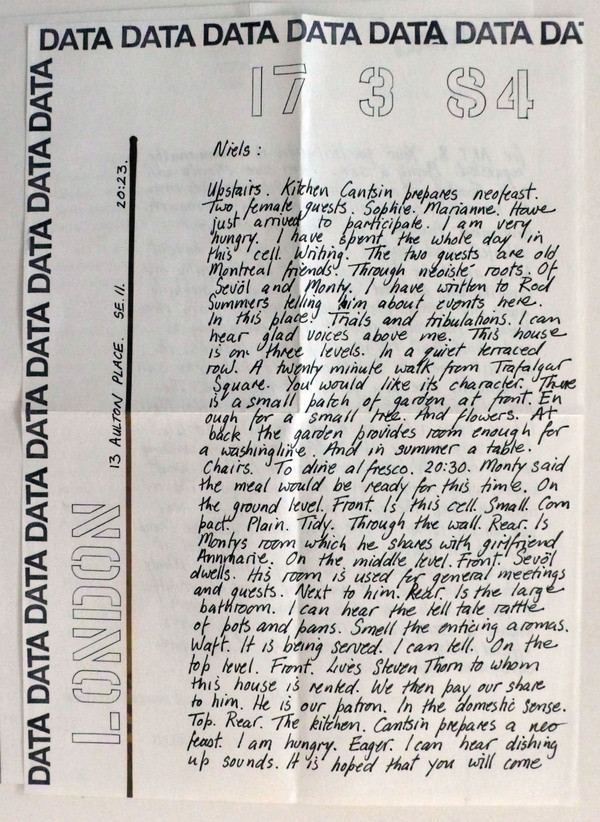 DATA DATA DATA DATA DATA DATA DAT
DATA DATA DATA DATA DATA DATA DATA DATA DATA
17 3 84
20:23.
13 AULTON PLACE. SE.11.
LONDON
Niels:
Upstairs. Kitchen Cantsin prepares neofeast.
Two female guests. Sophie. Marianne. Have
just arrived to participate. I am very
hungry. I have spent the whole day in
this cell. Writing. The two guests are old
Montreal friends. Through neoiste roots. Of
Sevöl and Monty. I have written to Rod
Summers telling him about events here.
In this place. Trials and tribulations. I can
hear glad voices above me. This house
is on three levels. In a quiet terraced
row. A twenty minute walk from Trafalgar
Square. You would like its character. There
is a small patch of garden at front. En
ough for a small tree. And flowers. At
back the garden provides room enough for
a washingline. And in summer a table.
Chairs. To dine al fresco. 20:30. Monty said
the meal would be ready for this time. On
the ground level. Front. Is this cell. Small. Com
pact. Plain. Tidy. Through the wall. Rear. Is
Montys room which he shares with girlfriend
Annmarie. On the middle level. Front. Sevöl
dwells. His room is used for general meetings
and guests. Next to him. Rear. Is the large
bathroom. I can hear the tell tale rattle
of pots and pans. Smell the enticing aromas.
Waft. It is being served. I can tell. On the
top level. Front. Lives Steven Thorn to whom
this house is rented. We then pay our share
to him. He is our patron. In the domestic sense.
Top. Rear. The kitchen. Cantsin prepares a neo
feast. I am hungry. Eager. I can hear dishing
up sounds. It is hoped that you will come